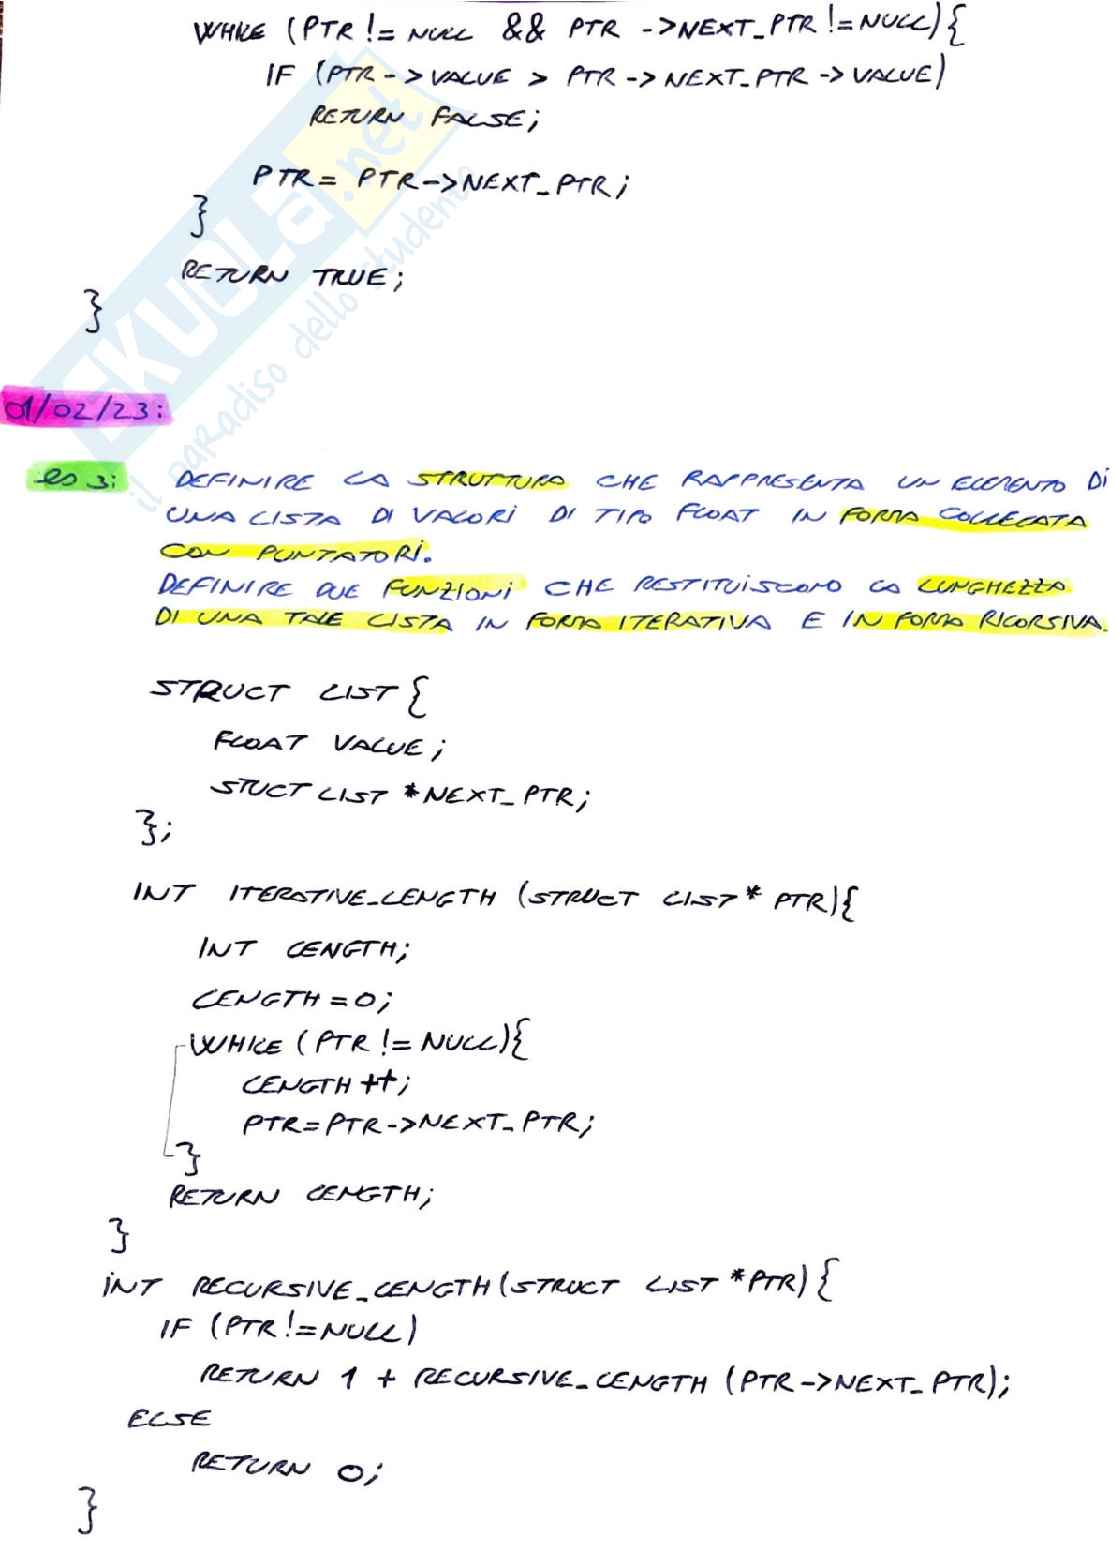 WHILE (PTR != NULL && PTR ->NEXT_PTR != NULL){
IF (PTR -> VALUE > PTR -> NEXT_PTR -> VALUE)
RETURN FALSE;
PTR = PTR->NEXT_PTR;
}
RETURN TRUE;
}
SKUOLA.net
il paradiso dello studente
01/02/23:
es 3: DEFINIRE LA STRUTTURA CHE RAPPRESENTA UN ELEMENTO DI
UNA LISTA DI VALORI DI TIPO FLOAT IN FORMA COLLEGATA
CON PUNTATORI.
DEFINIRE DUE FUNZIONI CHE RESTITUISCONO LA LUNGHEZZA
DI UNA TALE LISTA IN FORMA ITERATIVA E IN FORMA RICORSIVA.
STRUCT LIST {
FLOAT VALUE;
STUCT LIST *NEXT_PTR;
};
INT ITERATIVE_LENGTH (STRUCT LIST* PTR){
INT LENGTH;
LENGTH = 0;
WHILE (PTR != NULL){
LENGTH ++;
PTR = PTR->NEXT_PTR;
}
RETURN LENGTH;
}
INT RECURSIVE_LENGTH (STRUCT LIST *PTR) {
IF (PTR != NULL)
RETURN 1 + RECURSIVE_LENGTH (PTR->NEXT_PTR);
ELSE
RETURN 0;
}